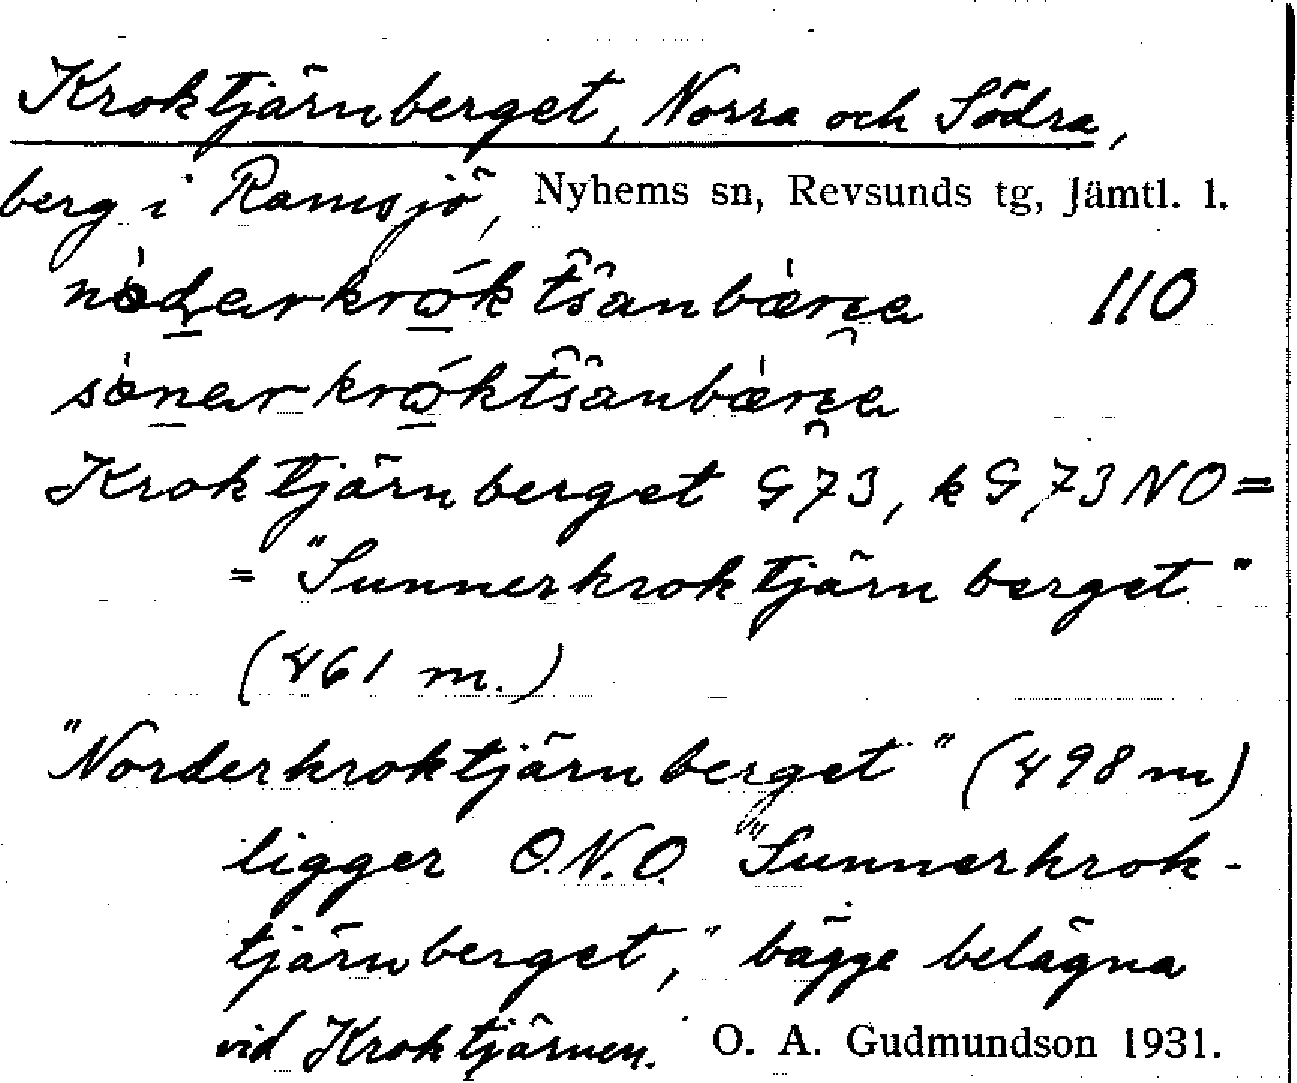 Kroktjärnberget, Norra och Södra,
berg i Ramsjö, Nyhems sn, Revsunds tg, Jämtl. l.
110
Kroktjärnberget G73, k G73 NO =
= "Sunnerkroktjärnberget"
(461 m.)
"Norderkroktjärnberget" (498 m)
ligger O.N.O. "Sunnerkrok-
tjärnberget," bägge belägna
vid Kroktjärnen. O. A. Gudmundson 1931.